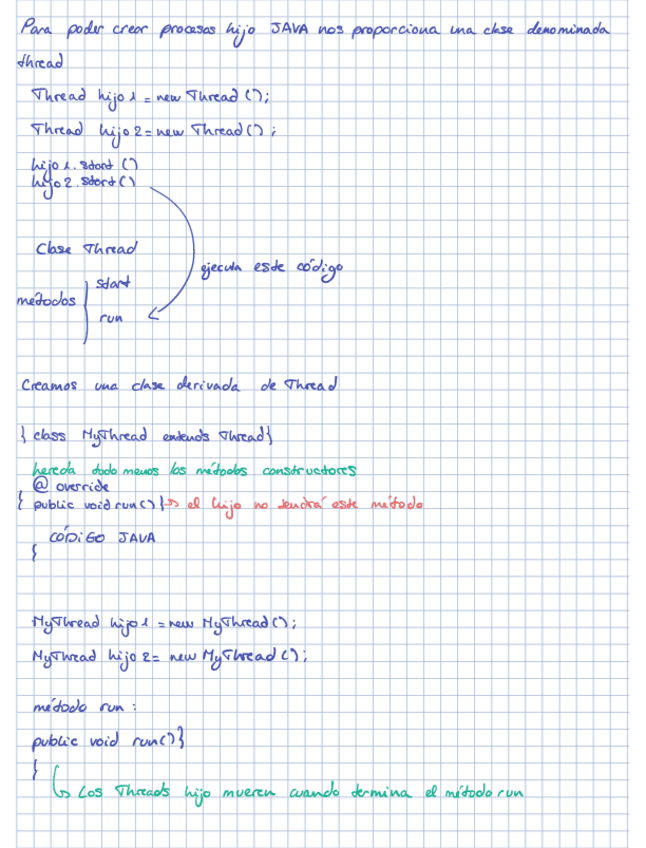 Para poder crear procesos hijo JAVA nos proporciona una clase denominada
thread
Thread hijo1 = new Thread();
Thread hijo2 = new Thread();
hijo1.start()
hijo2.start()
Clase Thread
ejecuta este código
start
métodos
run
Creamos una clase derivada de Thread
{ class MyThread extends Thread{
hereda todo menos los métodos constructores
@override
{ public void run(){ → el hijo no tendrá este método
CÓDIGO JAVA
{
MyThread hijo1 = new MyThread();
MyThread hijo2 = new MyThread();
método run:
public void run(){
}
↳ Los Threads hijo mueren cuando termina el método run